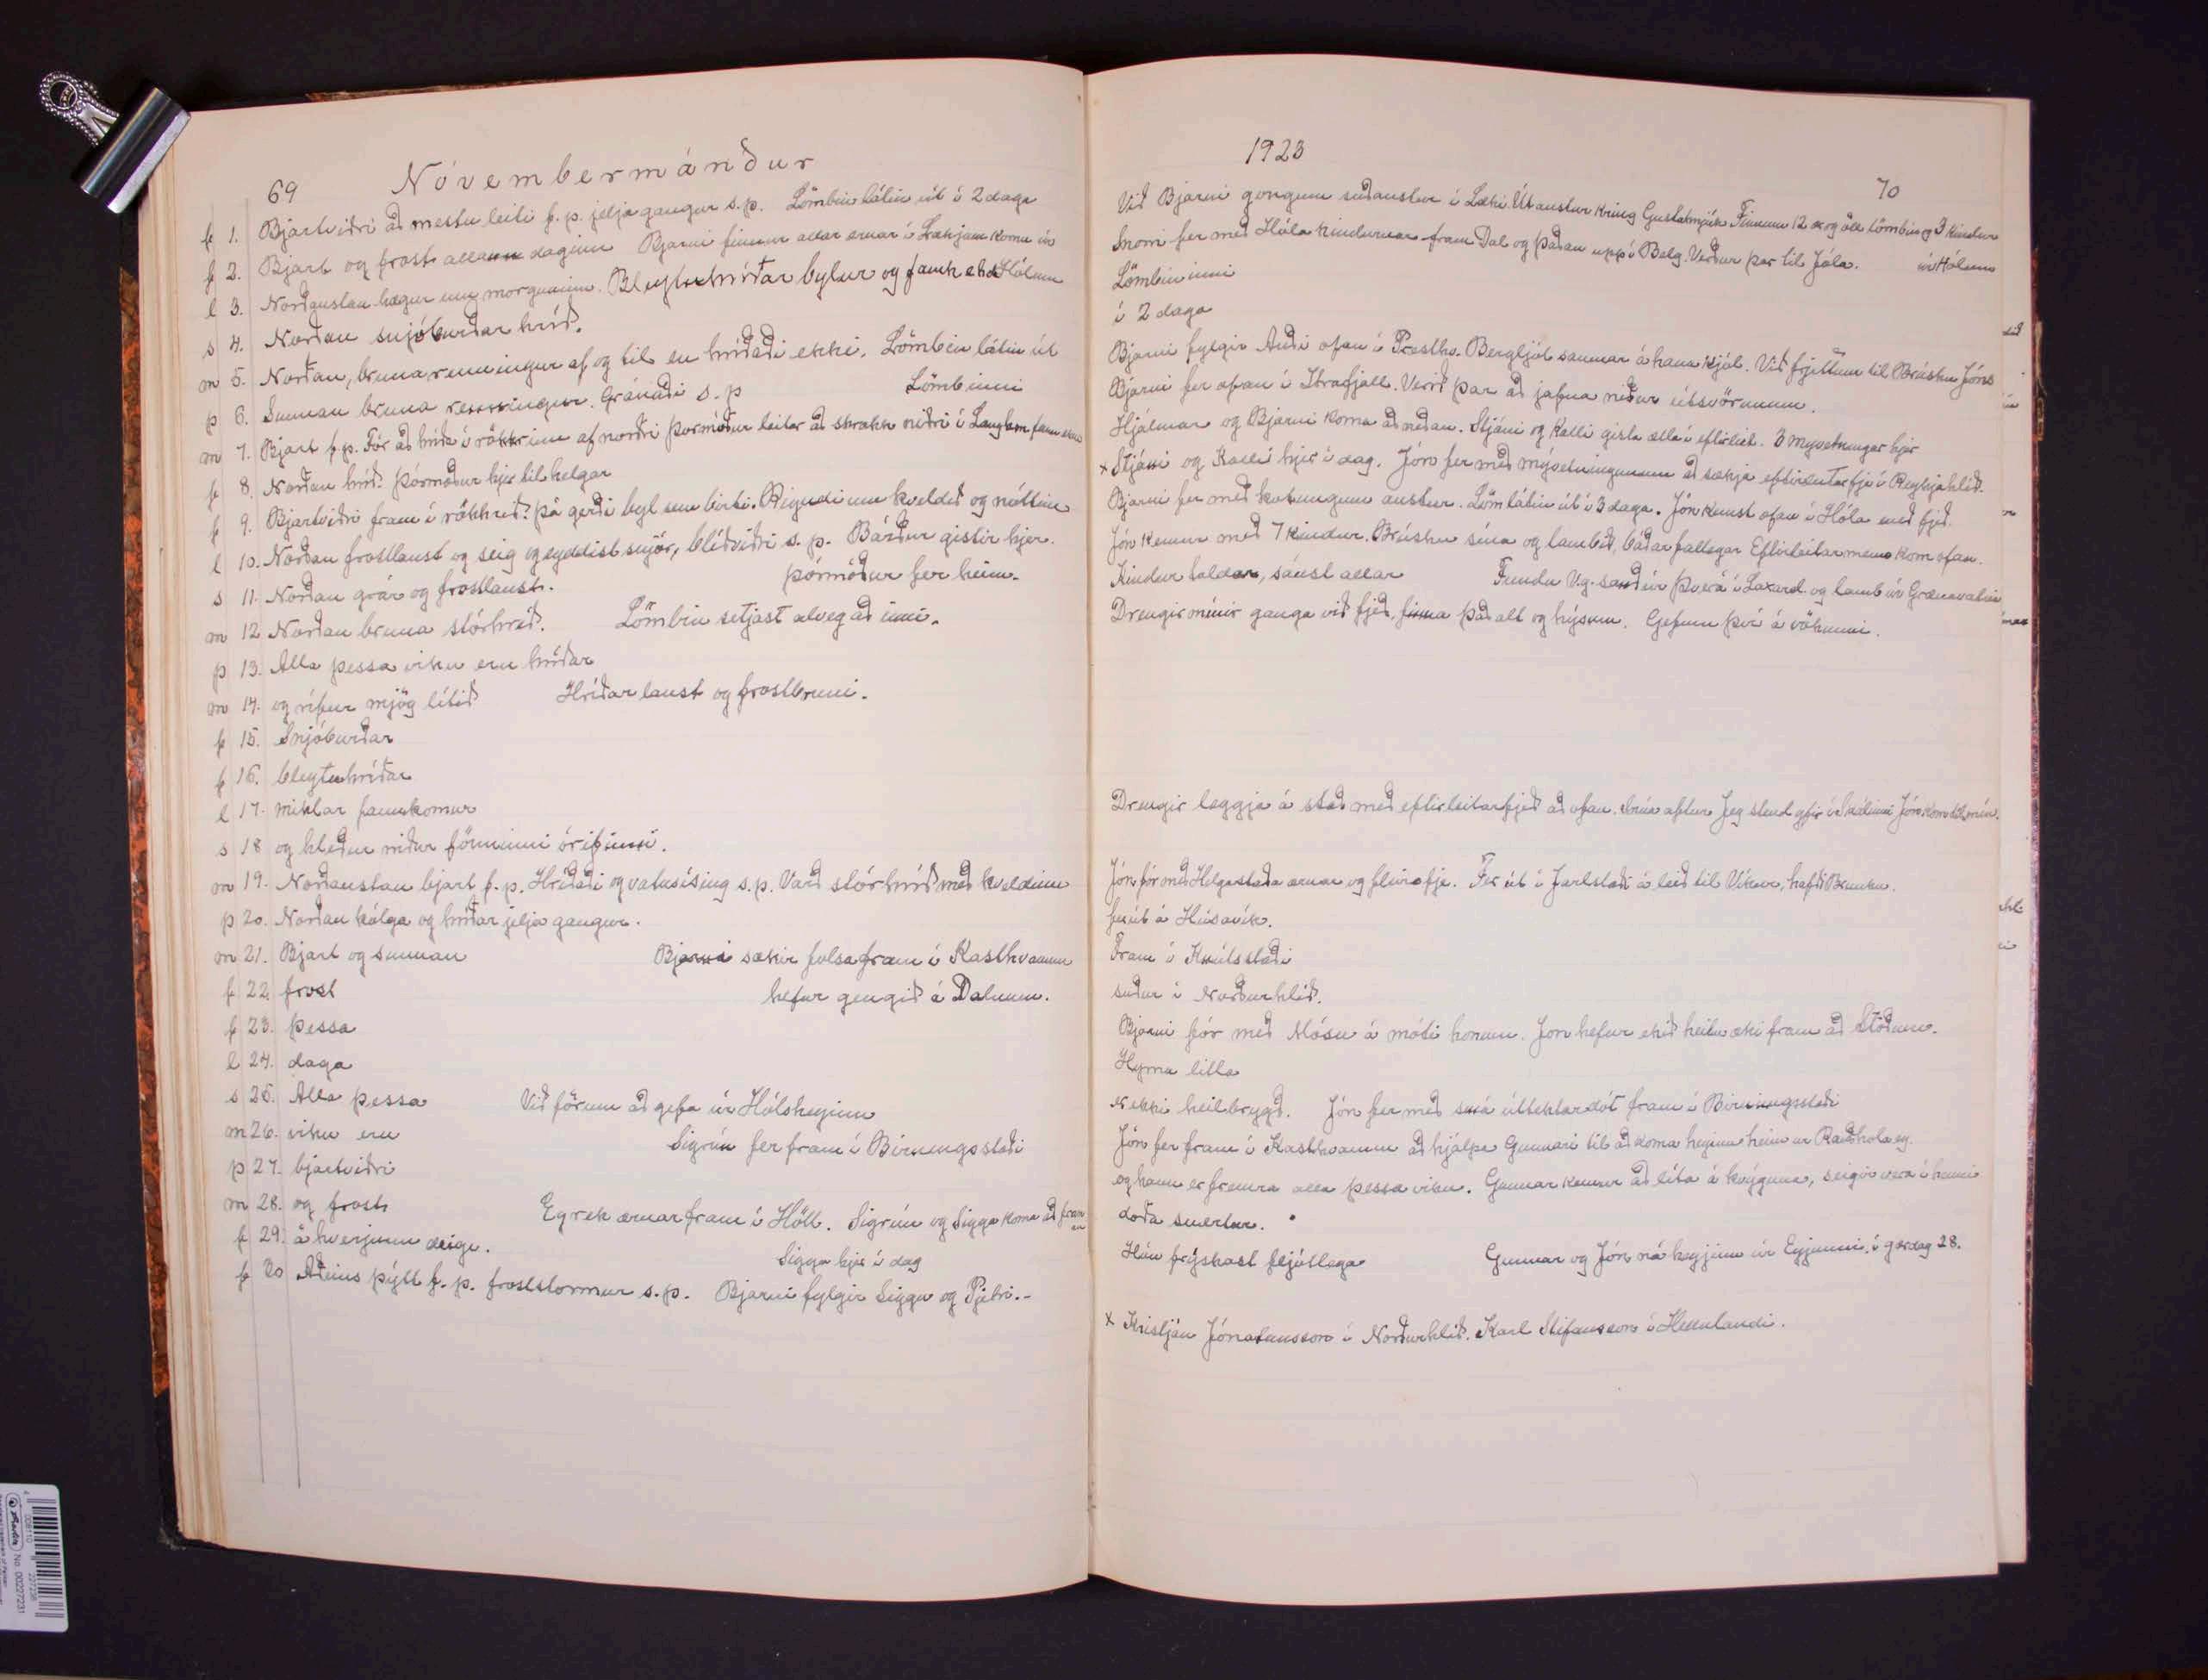 69 Nóvembermánuður
f 1. Bjartviðri að mestu leiti f.p. jeljagangur s.p. Lömbin látin út í 2 daga
f 2. Bjart og frost allann daginn Bjarni finnur allar ærnar í Lækjam komu úr
l 3. Norðaustan hægur um morguninn. Bleytuhríðar bylur og fauk Hólum
s 4. Norðan snjóburðar hríð.
m 5. Norðan, bruna renningur af og til en hríðaði ekki. Lömbin látin út
þ 6. Sunnan bruna renningur. Gránaði s.p Lömb inni
m 7. Bjart f.p. Fór að hríða í rökkrinu af norðri Þormóður leitar að skrökk niðri í
f 8. Norðan hríð. Þórmóður hjer til helgar
f 9. Bjartviðri fram í rökkrið. Þá gerði byl sem birti. Rigndi um kveldið og nóttina
l 10. Norðan frostlaust og seig og eyddist snjór, blíðviðri s.p. Bárður gistir hjer.
s 11. Norðan grár og frostlaust. Þórmóður fer heim.
m 12 Norðan bruna stórhríð. Lömbin setjast alveg að inni.
þ 13. Alla þessa viku eru hríðar
m 14. og rífur mjög lítið Hríðar laust og frostbruni.
f 15. Snjóburðar
f 16. bleytuhríðar
l 17. miklar fannkomur
s 18 og hleður niður fönninni órifinni.
m 19. Norðaustan bjart f.p. Hríðaði og vatnsísing s.p. Varð stórhríð með kveldinu
þ 20. Norðan kólga og hríðar jeljagangur.
m 21. Bjart og sunnan Bjarni sækir folsa fram í Kasthvamm
f 22 frost hefur gengið á Dalnum.
f 23. þessa
l 24. daga
s 25. Alla þessa Við förum að gefa úr Hólsheyinu
m 26. viku eru Sigrún fer fram í Birningsstaði
þ 27. bjartviðri
m 28. og frost Eg rek ærnar fram í Höll. Sigrún og Sigga koma að framan
f 29. á hverjum deigi. Sigga hjer í dag
f 30 Aðeins þýtt f.p. froststormur s.p. Bjarni fylgir Siggu og Pjetri.-
1923 70
Við Bjarni gongum suðaustur í Læki. Út austur kring Finnum 12 ær og öll lömbin og 3 kindur
Snorri fer með Hóla kindurnar fram Dal og þaðan upp í Belg. Verður þar til Jóla. úr Hólum
Lömbin inni
í 2 daga
Bjarni fylgir Auði ofan í Presthv. Bergljót saumar á hana kjól. Við frjettum til Brúsku Jóns
Bjarni fer ofan í Ytrafjall. Verið þar að jafna niður útsvörunum.
Hjálmar og Bjarni koma að neðan. Stjáni og Kalli gista ætla í eftirleit. 3 mývetningar hjer
x Stjáni og Kalli hjer í dag. Jón fer með mývetningunum að sækja eftirleitarfje í Reykjahlíð.
Bjarni fer með austur. Löm látin út í 3 daga. Jón kemst ofan í Hóla með fjeð
Jón kemur með 7 kindur. Brúsku sína og lambið, báðar fallegar Eftirleitarmenn kom ofan.
Kindur taldar, sáust allar Fundu Vg. sauð úr Þverá í Laxard. og lamb úr Grænavatni
Drengir mínir ganga við fjeð, finna það alt og hýsum. Gefum því á vökunni.
Drengir leggja á stað með eftirleitarfjeð að ofan. Snúa aftur Jeg stend yfir Jón kom til mín.
Jón fór með Helgastaða ærnar og fleira fje. Fer út í Jarlstaði á leið til Víkur, hafði Brunku.
fer út á Húsavík.
Fram í Knútsstaði
suður í Norðurhlíð.
Bjarni fór með Mósu á móti honum. Jón hefur ekið heilu æki fram að Stöðum.
Hyrna litla
er ekki heilbrygð. Jón fer með smá úttektardót fram í Birningsstaði
Jón fer fram í Kasthvamm að hjálpa Gunnari til að koma heyinu heim úr Rauðhólaey.
og hann er fremra alla þessa viku. Gunnar kemur að líta á kvýguna, seigir vera í henni
doða snertur.
Hún frýskast fljótlega Gunnar og Jón ná heyjinu úr Eyjunni, í gærdag 28.
x Kristján Jónatansson í Norðurhlíð. Karl Stefansson í Hellulandi.